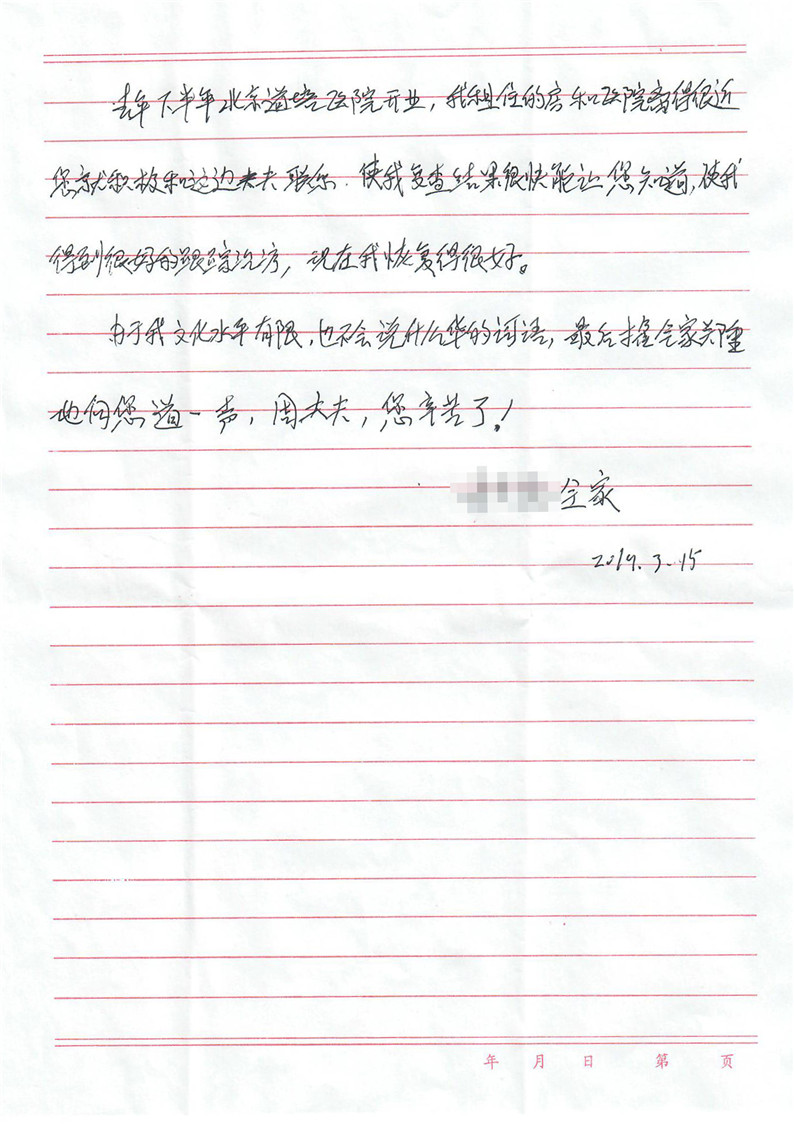 去年下半年北京道培医院开业，我租住的房和医院离得很近
您就积极和这边大夫联系．使我复查结果很快能让您知道，使我
得到很好的跟踪治疗，现在我恢复得很好。
由于我文化水平有限，也不会说什么华的词语，最后携全家郑重
地向您道一声，周大夫，您辛苦了！
全家
2019.3.15
年 月 日 第 页